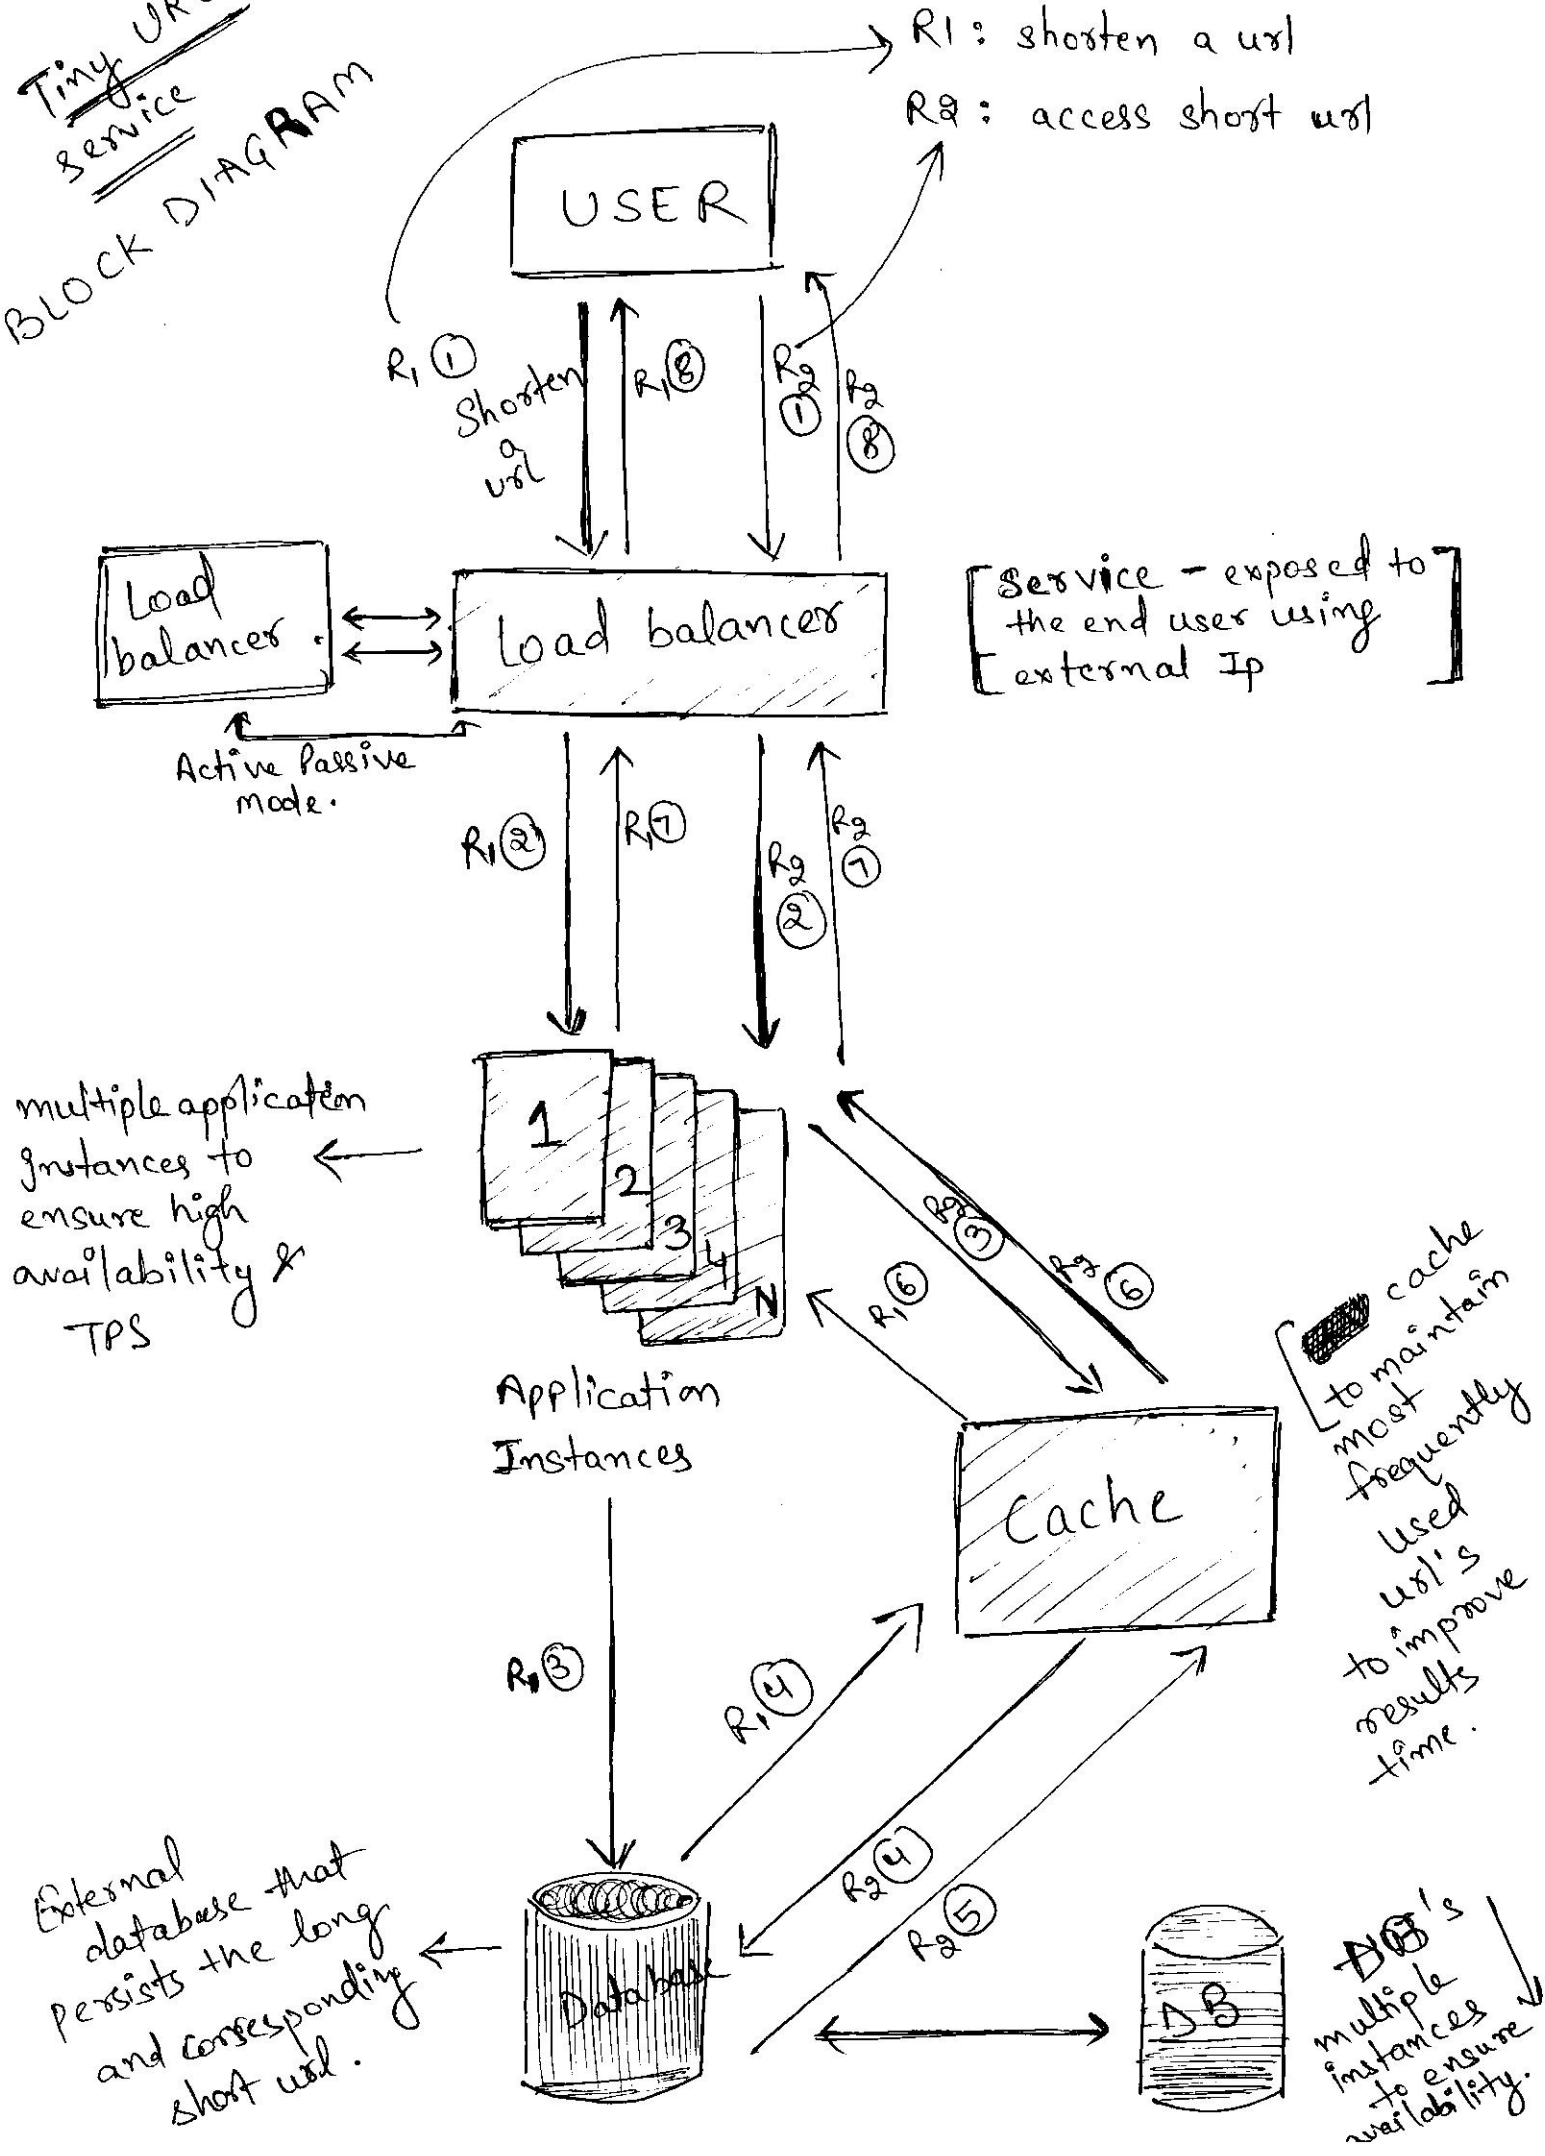 Tiny URL
service
BLOCK DIAGRAM
R1 : shorten a url
R2 : access short url
USER
R1 ①
Shorten
a
url
R1 ⑧
R2
①
R2
⑧
Load
balancer.
Load balancer
[Service - exposed to
the end user using
external Ip]
Active Passive
mode.
R1 ②
R1 ⑦
R2
②
R2
⑦
multiple application
Instances to
ensure high
availability &
TPS
1
2
3
4
N
Application
Instances
R2
③
R2 ⑥
R1 ⑥
cache
to maintain
most
frequently
used
url's
to improve
results
time.
Cache
R1 ③
R1 ④
R2 ④
R2 ⑤
External
database that
persists the long
and corresponding
short url.
Database
DB
DB's
multiple
instances
to ensure
availability.